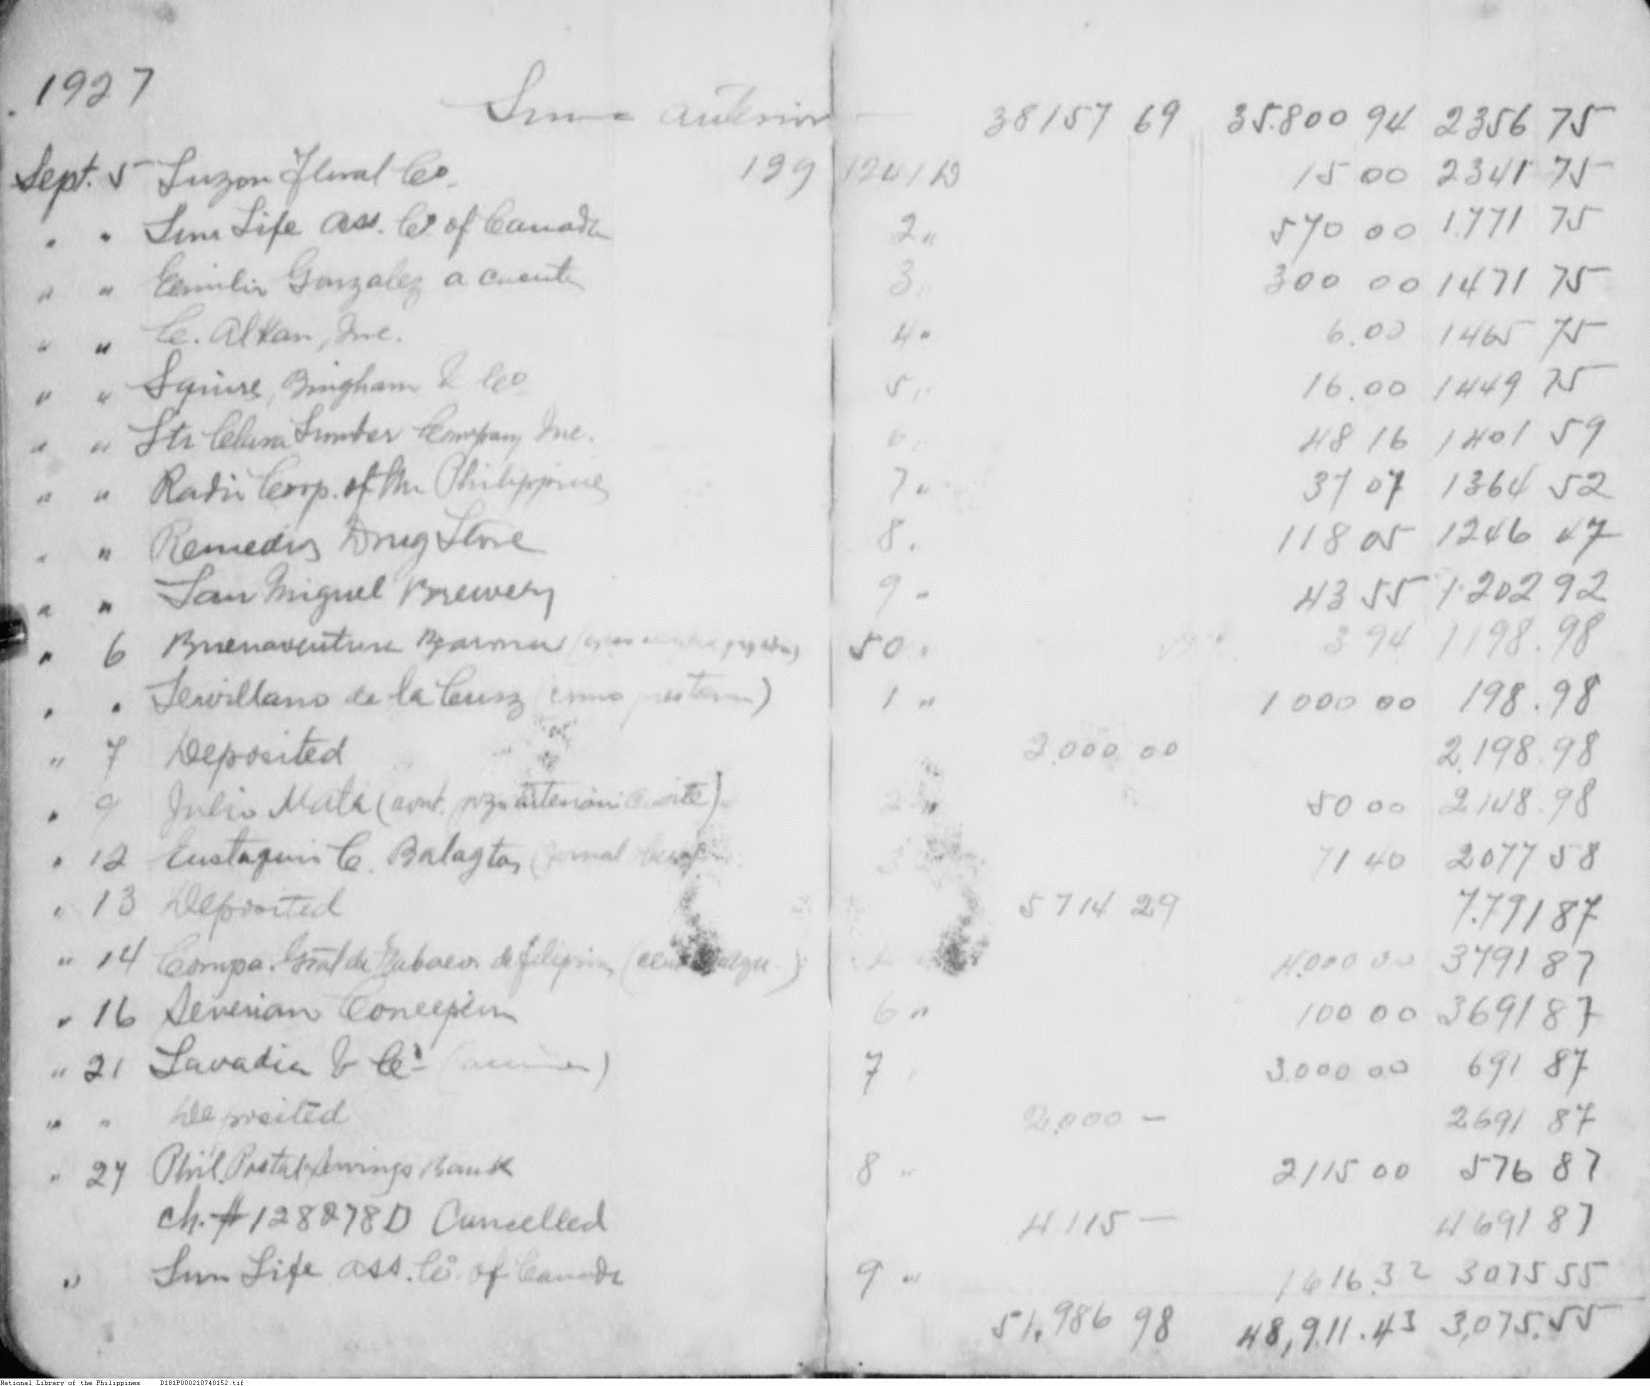 1927
Suma anterior — 38157 69 35.800 94 2356 75
Sept. 5 Luzon Floral Co. 129 1241 D 15 00 2341 75
" " Sun Life ass. Co of Canada 2 " 570 00 1.771 75
" " Emilio Gonzalez a cuenta 3 " 300 00 1471 75
" " C. Alkan, Inc. 4 " 6.00 1465 75
" " Squires, Bingham & Co 5 " 16.00 1449 75
" " Str Clara Lumber Company, Inc. 6 48 16 1401 59
" " Radio Corp. of the Philippines 7 " 37 07 1364 52
" " Remedios Drug Store 8 " 118 05 1246 47
" " San Miguel Brewery 9 " 43 55 1.202 92
" 6 Buenaventura 50 " 3 94 1198.98
" " Servillano de la Cruz ( ) 1 " 1 000 00 198.98
" 7 Deposited 2.000 00 2.198.98
" 9 Julio Mata ( ) 2 " 50 00 2148.98
" 12 Eustaquio C. Balagtas ( 71 40 2077 58
" 13 Deposited 5714 29 7.791 87
" 14 Compa. Gral de Tabacos de Filipinas ( ) 4.000 00 3791 87
" 16 Severian Concepcion 6 " 100 00 3691 87
" 21 Lavadia & Ca ( ) 7 3.000 00 691 87
" " Deposited 2.000 — 2691 87
" 27 Phil. Postal Savings Bank 8 " 2115 00 576 87
ch. # 128278 D Cancelled 4115 — 4691 87
" Sun Life ass. Co. of Canada 9 " 1616.32 3075 55
51,986 98 48,911.43 3,075.55
National Library of the Philippines D181P000210740152.tif